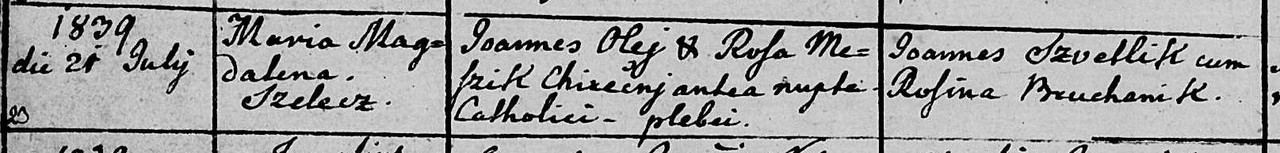 1839
die 21 Julij
Maria Mag=
dalena.
Szelecz.
Joannes Olej & Rosa Me=
szik Chirečnj antea nupte
Catholici - plebei.
Joannes Szvetlik cum
Rosina Bruchanik.